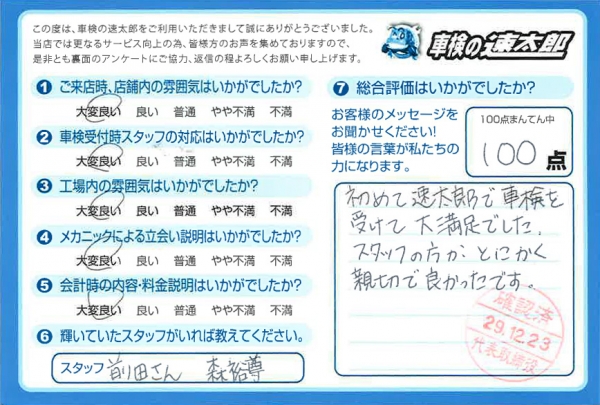 この度は、車検の速太郎をご利用いただきまして誠にありがとうございました。
当店では更なるサービス向上の為、皆様方のお声を集めておりますので、
是非とも裏面のアンケートにご協力、返信の程よろしくお願い申し上げます。
車検の速太郎
1 ご来店時、店舗内の雰囲気はいかがでしたか?
大変良い 良い 普通 やや不満 不満
2 車検受付時スタッフの対応はいかがでしたか?
大変良い 良い 普通 やや不満 不満
3 工場内の雰囲気はいかがでしたか?
大変良い 良い 普通 やや不満 不満
4 メカニックによる立会い説明はいかがでしたか?
大変良い 良い 普通 やや不満 不満
5 会計時の内容・料金説明はいかがでしたか?
大変良い 良い 普通 やや不満 不満
6 輝いていたスタッフがいれば教えてください。
スタッフ 前田さん 森裕尊
7 総合評価はいかがでしたか?
お客様のメッセージを
お聞かせください!
皆様の言葉が私たちの
力になります。
100点まんてん中
100 点
初めて速太郎で車検を
受けて大満足でした。
スタッフの方が、とにかく
親切で良かったです。
確認済
29.12.23
代表取締役